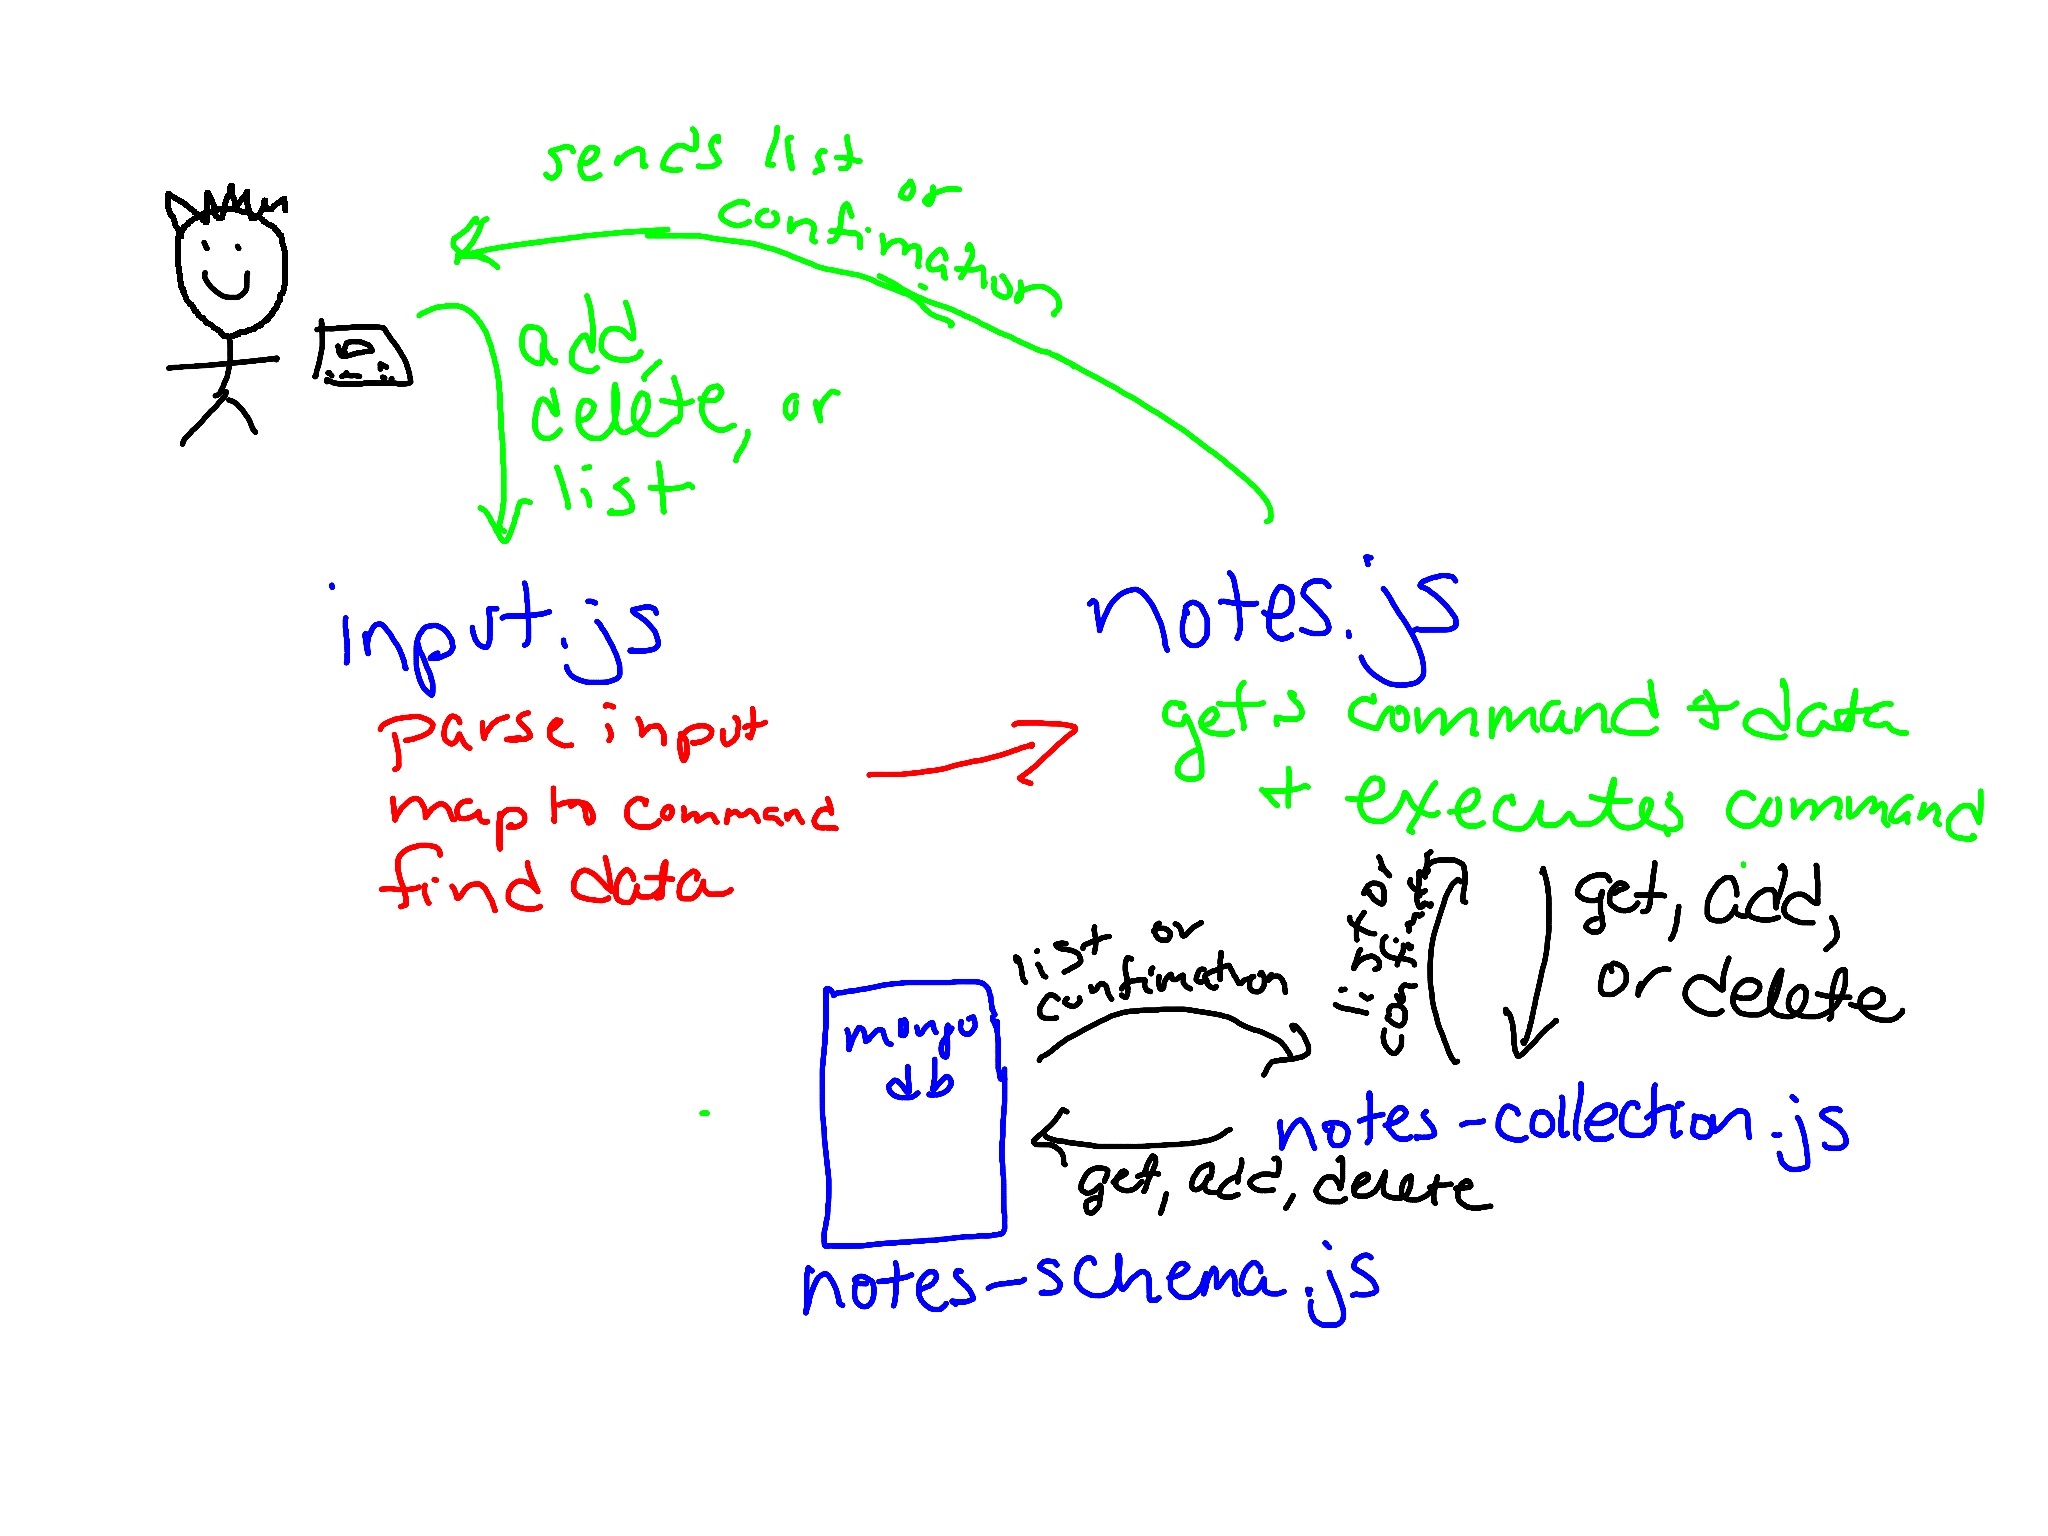 sends list or
confimation
add,
delete, or
list
input.js
parse input
map to command
find data
notes.js
gets command + data
+ executes command
get, add,
or delete
list or
list or
confimation
mongo
db
notes-collection.js
get, add, delete
notes-schema.js